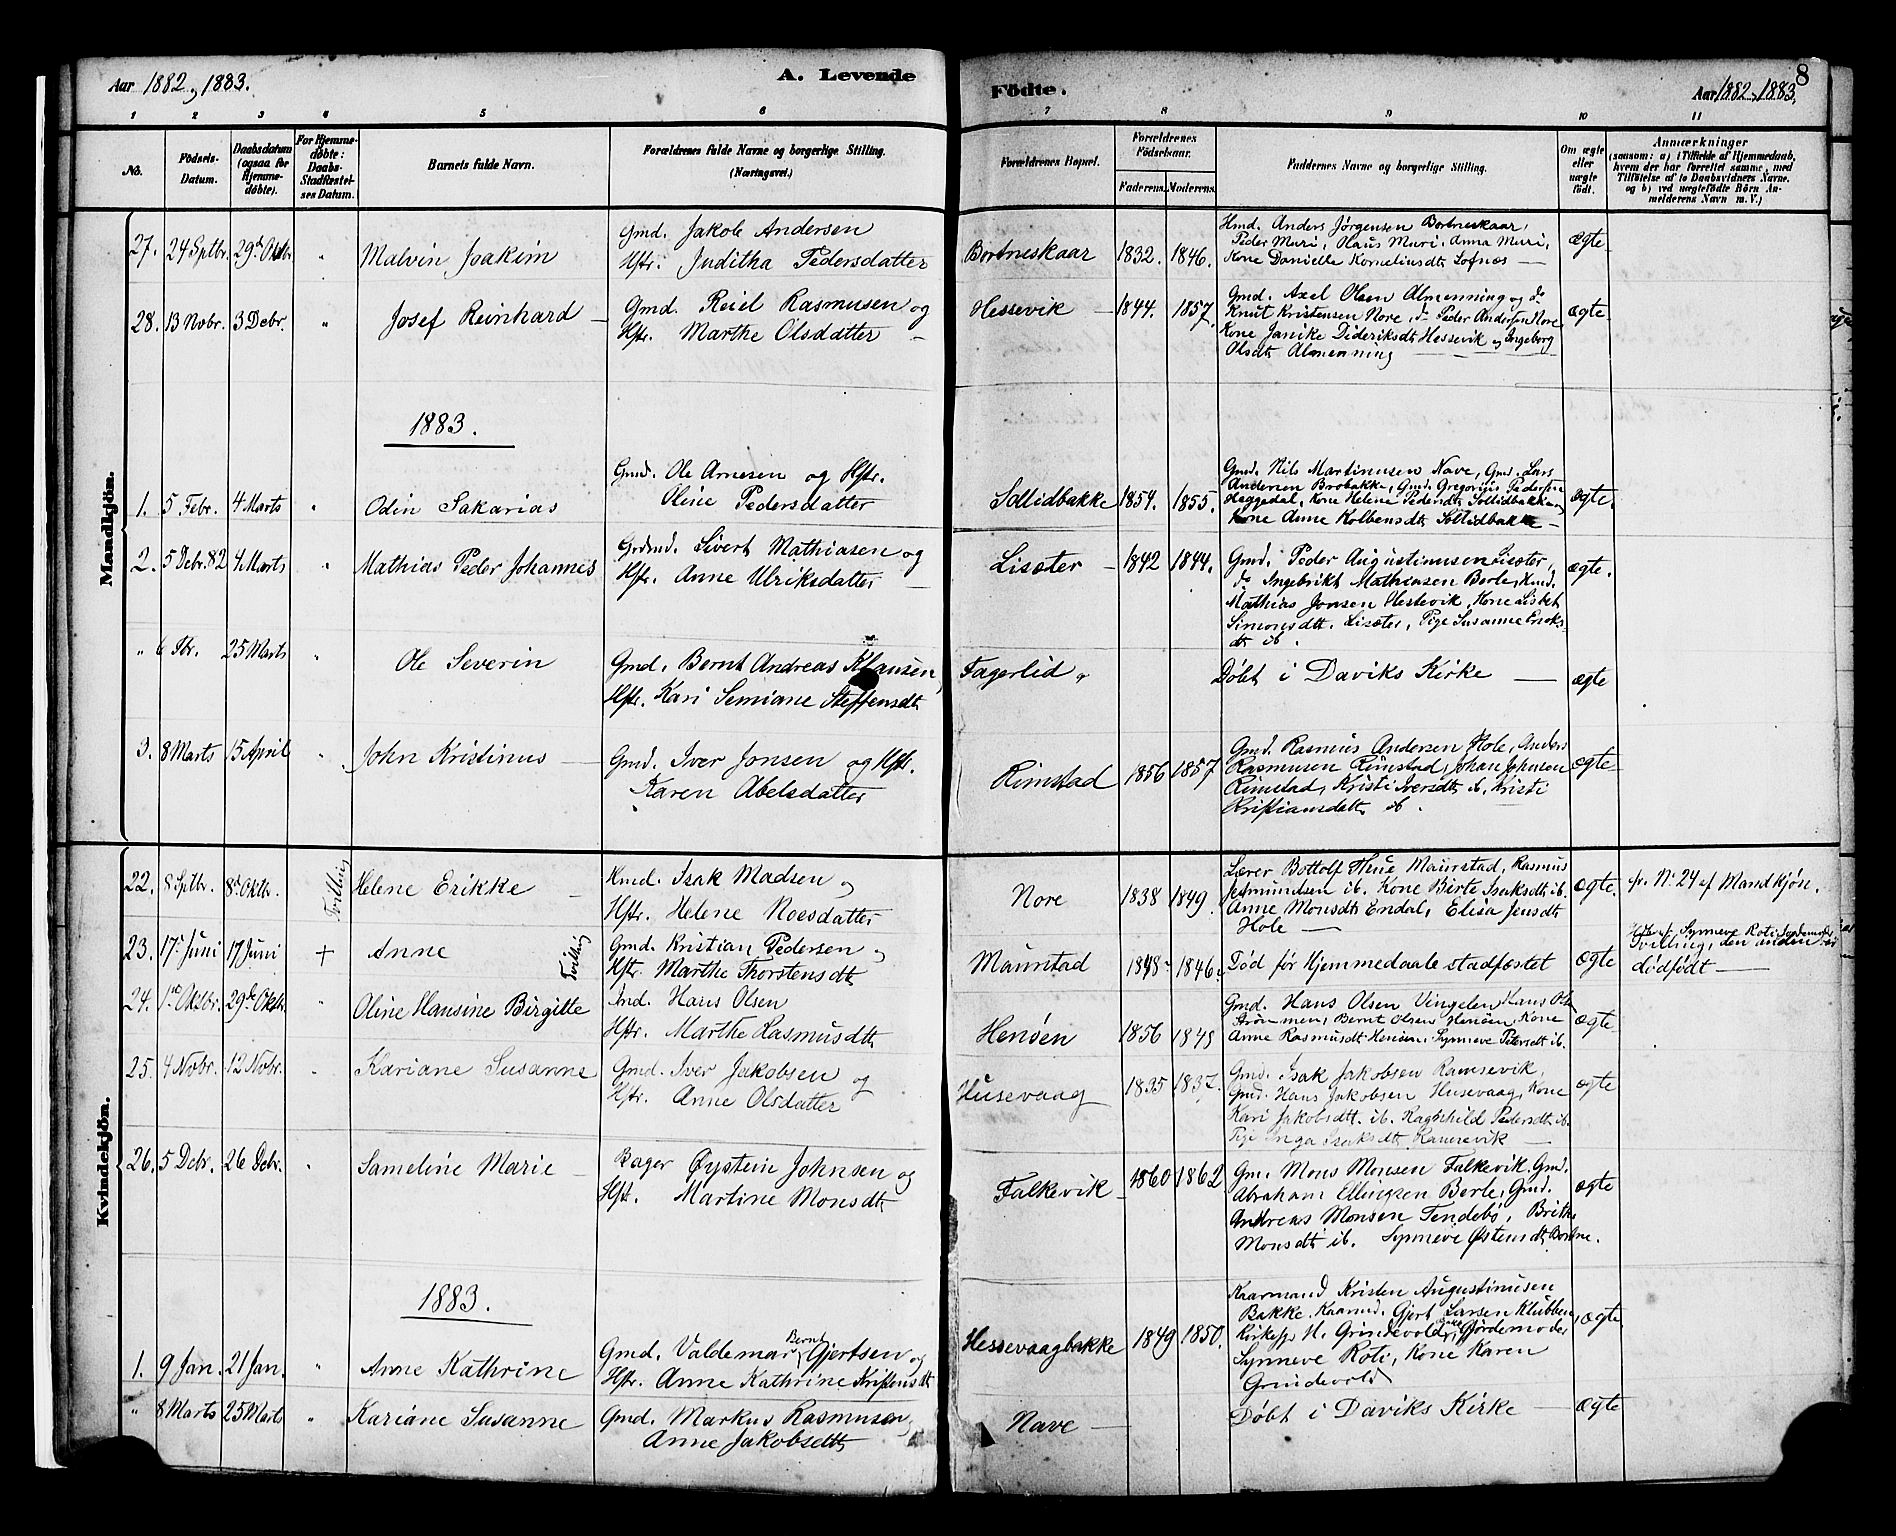 Aar 1882, 1883.
A. Levende
Födte.
Aar 1882, 1883.
8
1 2 3 4 5 6 7 8 9 10 11
No.
Födsels-
Datum.
Daabsdatum
(ogsaa for
Hjemme-
døbte).
For Hjemme-
døbte:
Daabs-
Stadfæstel-
ses Datum.
Barnets fulde Navn.
Forældrenes fulde Navne og borgerlige Stilling.
(Næringsvei.)
Forældrenes Bopæl.
Forældrenes
Födselsaar.
Faderens. Moderens.
Faddernes Navne og borgerlige Stilling.
Om ægte
eller
uægte
født.
Anmærkninger
(saasom: a) i Tilfælde af Hjemmedaab,
hvem der har forrettet samme, med
Tilføielse af to Daabsvidners Navne.
og b) ved uægtefödte Börn An-
melderens Navn m. V.)
Mandkjön.
27. 24 Sptbr. 29de Oktbr. " Malvin Joakim
Gmd. Jakob Andersen
Hstr. Juditha Pedersdatter
Bortneskaar 1832. 1846.
Hmd. Anders Jørgensen Bortneskaar,
Peder Muri, Claus Muri, Anna Muri,
Kone Danielle Korneliusdt. Lofnæs —
ægte
28. 13 Novbr. 3 Debr. " Josef Reinhard —
Gmd. Reiel Rasmusen og
Hstr. Marthe Olsdatter —
Hessevik — 1844. 1857.
Gmd. Axel Olsen Almenning og do
Knut Kristensen Nore, do Peder Andersen Nore
Kone Janike Dideriksdt. Hessevik og Ingeborg
Olsdt. Almenning
ægte
1883.
1. 5 Febr. 4 Marts " Odin Sakarias
Gmd. Ole Arnesen og Hstr.
Oline Pedersdatter
Soltidbakke 1854. 1855.
Gmd. Nils Martinusen Nave, Gmd. Lars
Andersen Brobakke, Gmd. Gregorius Pedersen
Haggedal, Kone Helene Pedersdt. Soltidbakke og
Kone Anne Kolbensdt. Soltidbakke —
ægte.
2. 5 Debr. 82 4 Marts " Mathias Peder Johannes
Grdmd. Sivert Mathiasen og
Hstr. Anne Ulriksdatter —
Lisæter — 1842 1844.
Gmd. Peder Augustinusen Lisæter,
do Ingebrikt Mathiasen Berle, Hmd.
Mathias Jonsen Hestevik, Kone Lisbet
Simonsdt. Lisæter, Pige Susanne Enoks-
dt. ib.
ægte.
" 6 Fbr. 25 Marts " Ole Severin
Gmd. Bernt Andreas Klausen,
Hstr. Kari Semiane Steffensdt.
Fagerlid "
Døbt i Daviks Kirke —
ægte
3. 8 Marts 15 April " John Kristinus —
Gmd. Iver Jonsen og Hstr.
Karen Abelsdatter
Rimstad 1856 1857
Gmd. Rasmus Andersen Hole, Anders
Rasmusen Rimstad, Johan Johnsen
Rimstad, Kristi Iversdt. ib, Kristi
Kristiansdatt. ib.
ægte
Kvindekjön.
22. 8 Sptbr. 8de Oktbr. Tvilling Helene Erikke —
Hmd. Isak Madsen og
Hstr. Helene Roesdatter
Nore 1838 1849.
Lærer Bottolf Thue Maurstad, Rasmus
Asmundsen ib. Kone Birte Isaksdt. ib.
Anne Monsdt. Endal, Elisa Jensdt.
Hole —
ægte. fr. No 24 af Mandkjøn.
23. 17de Juni 17 Juni + Anne Tvilling
Gmd. Kristian Pedersen og
Hstr. Marthe Thorstensdt.
Maurstad 1848 1846.
Død før Hjemmedaab stadfæstet
ægte
Hdbt. af Synneve Roti Jordemoder
Tvilling, den anden
dødfødt —
24. 1ste Oktbr. 29de Oktbr. " Oline Hansine Birgitte
Ind. Hans Olsen
Hstr. Marthe Rasmusdt.
Henøen 1856 1848
Gmd. Hans Olsen Vingelen, Hans Ols.
Strømmen, Bernt Olsen Henøen, Kone
Anne Rasmusdt. Henøen, Synneve Petersdt. ib.
ægte
25. 4 Novbr. 12 Novbr. " Kariane Susanne
Gmd. Iver Jakobsen og
Hstr. Anne Olsdatter
Husevaag 1835 1837.
Gmd. Isak Jakobsen Ramsevik,
Gmd. Hans Jakobsen Husevaag, Kone
Kari Jakobsdtt. ib. Ragnhild Pedersdt. ib.
Pige Inga Isaksdt. Ramsevik —
ægte
26. 5 Debr. 26 Debr. " Sameline Marie —
Bager Øystein Johnsen og
Hstr. Martine Monsdt.
Falkevik 1860 1862
Gm. Mons Monsen Falkevik, Gmd.
Abraham Ellingsen Berle, Gmd.
Andreas Monsen Tendebø, Brithe
Monsdt. ib. Synneve Østensdt. Bortne.
ægte
1883.
1. 9 Jan. 21 Jan. " Anne Kathrine
Gmd. Valdemar Bernt Gjertsen og
Hstr. Anne Kathrine Kristensdt.
Hessevaagbakke 1849 1850.
Kaarmand Kristen Augustinusen
Bakke, Kaarmd. Gjert Larsen Klubben,
Kirkesgr. H. Grindevold, Gjordemoder
Synneve Roti, Kone Karen
Grindevold
ægte
" 8 Marts 25 Marts " Kariane Susanne
Gmd. Markus Rasmusen,
Anne Jakobsdtt.
Nave —
Døbt i Daviks Kirke —
ægte